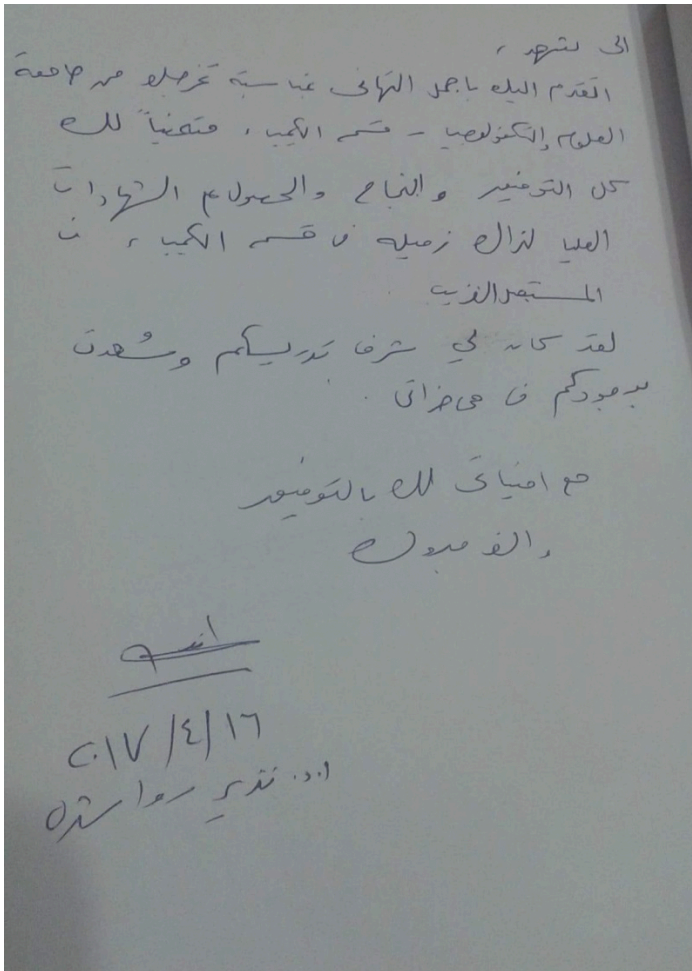 الى شهد ،
اتقدم اليك باجمل التهاني بمناسبة تخرجك من جامعة
العلوم والتكنولوجيا - قسم الكيمياء ، متمنياً لك
كل التوفيق والنجاح والحصول على الشهادات
العليا لنراك زميله في قسم الكيمياء ، في
المستقبل القريب
لقد كان لي شرف تدريسكم وسُعدت
بوجودكم في محاضراتي .
مع امنياتي لك بالتوفيق
والف مبروك
٢٠١٧/٤/١٦
ا.د. نذير رواشده